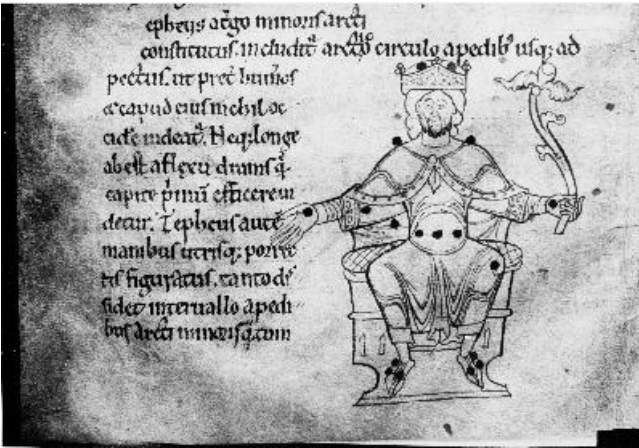 epheus atgo minoris arcti
constitutus includit arcto circulo a pedib usq; ad
pectus. ut pret humos
& capud eius nichil oc
cide uideat. Neq; longe
abest a flexu
capite efficere ui
detur. Cepheus aute
manibus utrisq; porrec
tis figuratus. tanto dis
sidet interuallo a pedi
bus arcti minoris